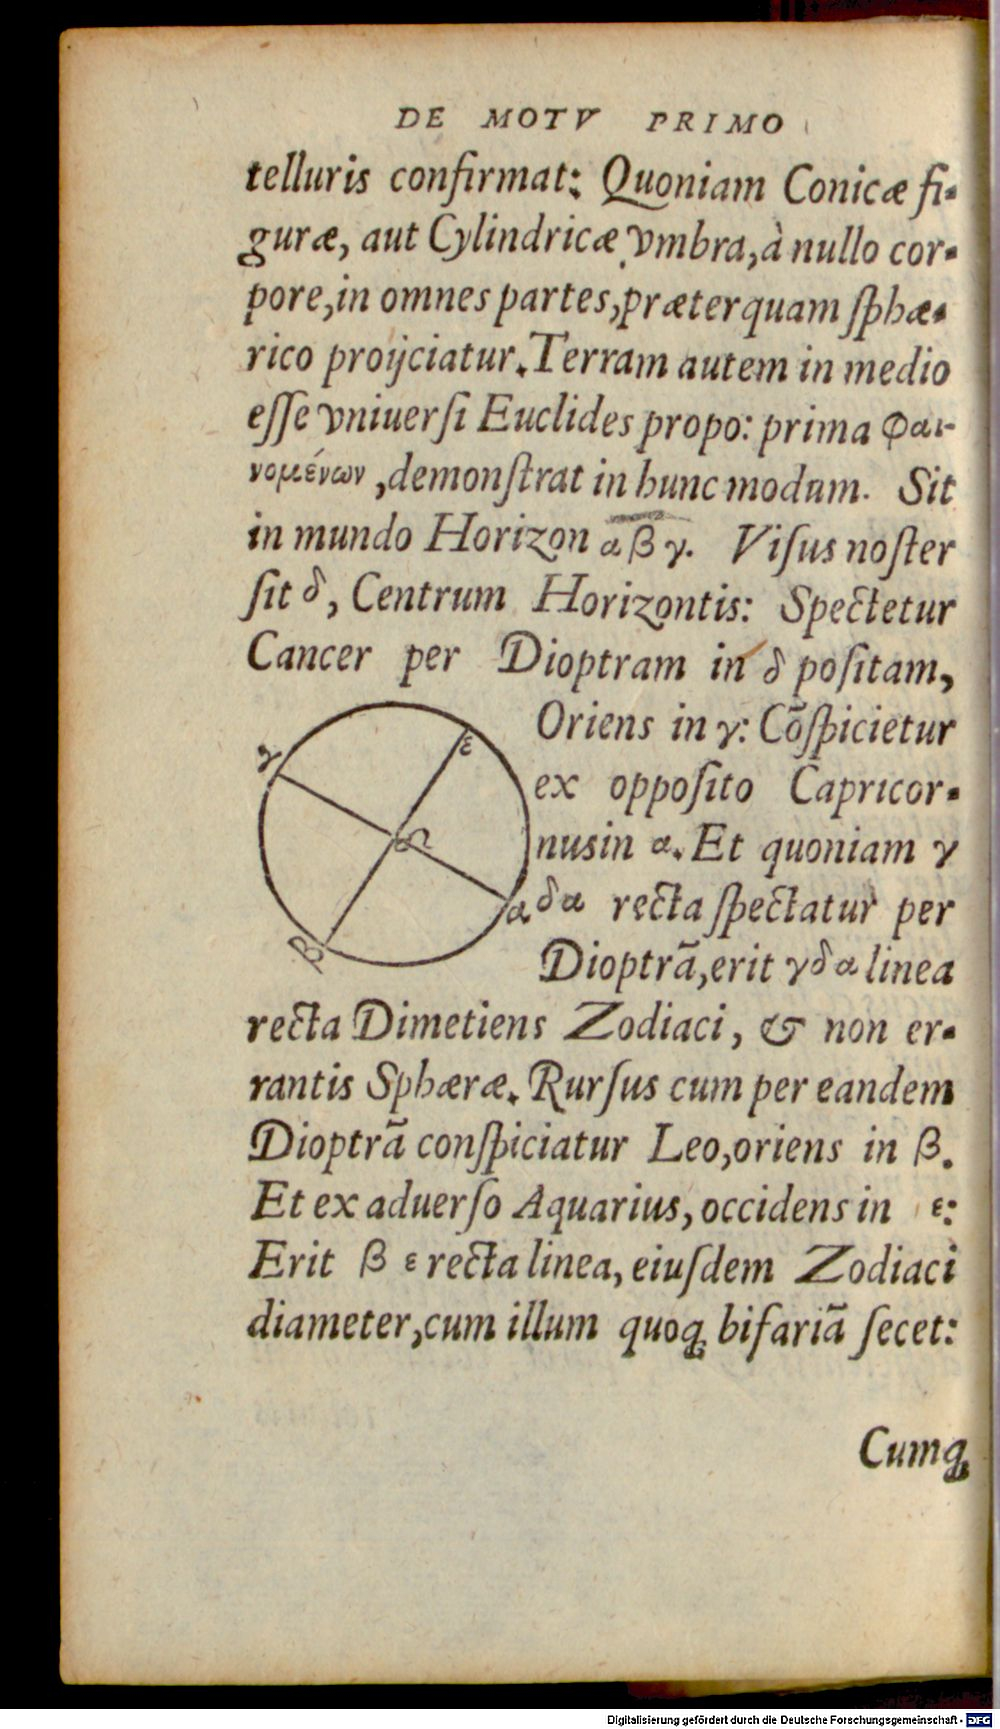 DE MOTV PRIMO
telluris confirmat: Quoniam Conicæ fi-
guræ, aut Cylindricæ vmbra, à nullo cor-
pore, in omnes partes, præterquam ſphæ-
rico proijciatur. Terram autem in medio
eſſe vniuerſi Euclides propo: prima Φαι-
νομένων, demonſtrat in hunc modum. Sit
in mundo Horizon α β γ. Viſus noſter
ſit δ, Centrum Horizontis: Spectetur
Cancer per Dioptram in δ poſitam,
Oriens in γ: Cõſpicietur
ex oppoſito Capricor-
nus in α. Et quoniam γ
δ α recta ſpectatur per
Dioptrã, erit γ δ α linea
γ
ε
δ
α
β
recta Dimetiens Zodiaci, & non er-
rantis Sphæræ. Rurſus cum per eandem
Dioptrã conſpiciatur Leo, oriens in β.
Et ex aduerſo Aquarius, occidens in ε:
Erit β ε recta linea, eiuſdem Zodiaci
diameter, cum illum quoq; bifariã ſecet:
Cumq;
Digitalisierung gefördert durch die Deutsche Forschungsgemeinschaft - DFG